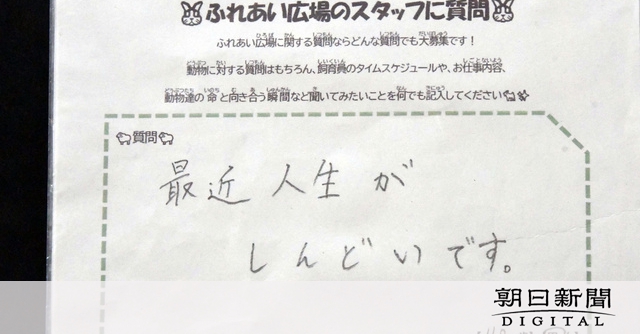 ふれあい広場のスタッフに質問
ふれあい広場に関する質問ならどんな質問でも大募集です！
動物に対する質問はもちろん、飼育員のタイムスケジュールや、お仕事内容、
動物達の命と向き合う瞬間など聞いてみたいことを何でも記入してください
質問
最近人生が
しんどいです。
朝日新聞
DIGITAL